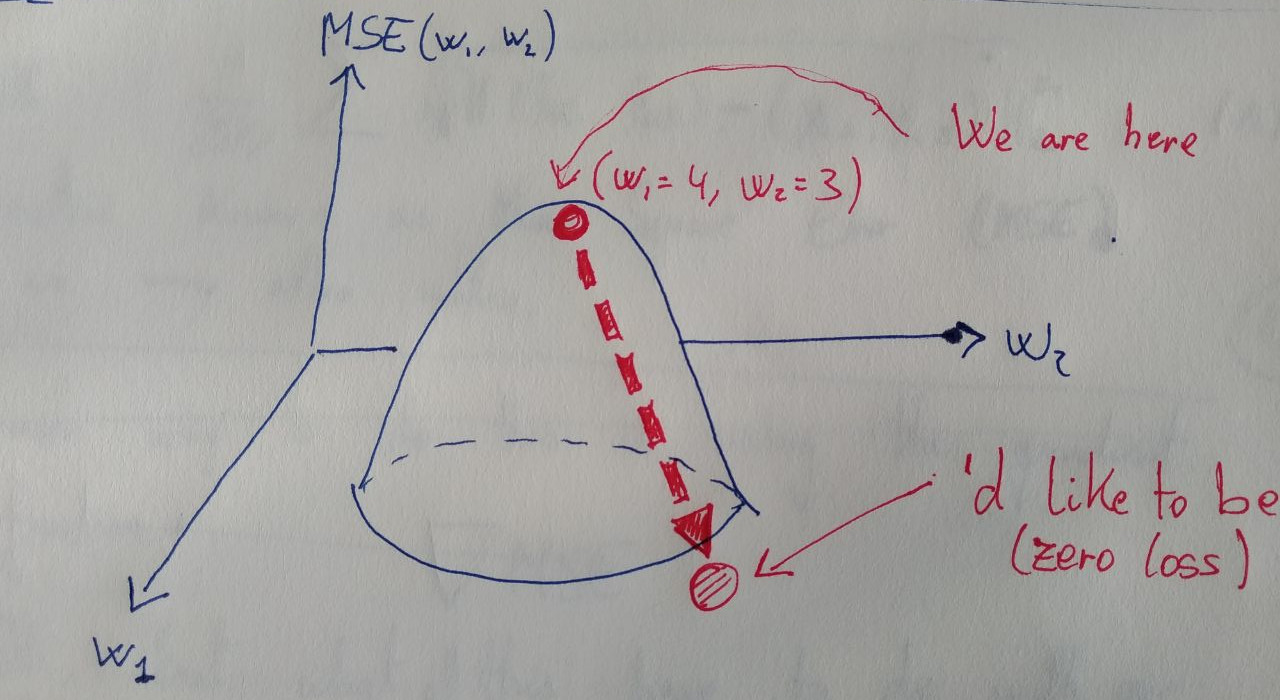 MSE(w₁, w₂)
We are here
(w₁= 4, w₂=3)
w₂
'd like to be
(zero loss)
w₁